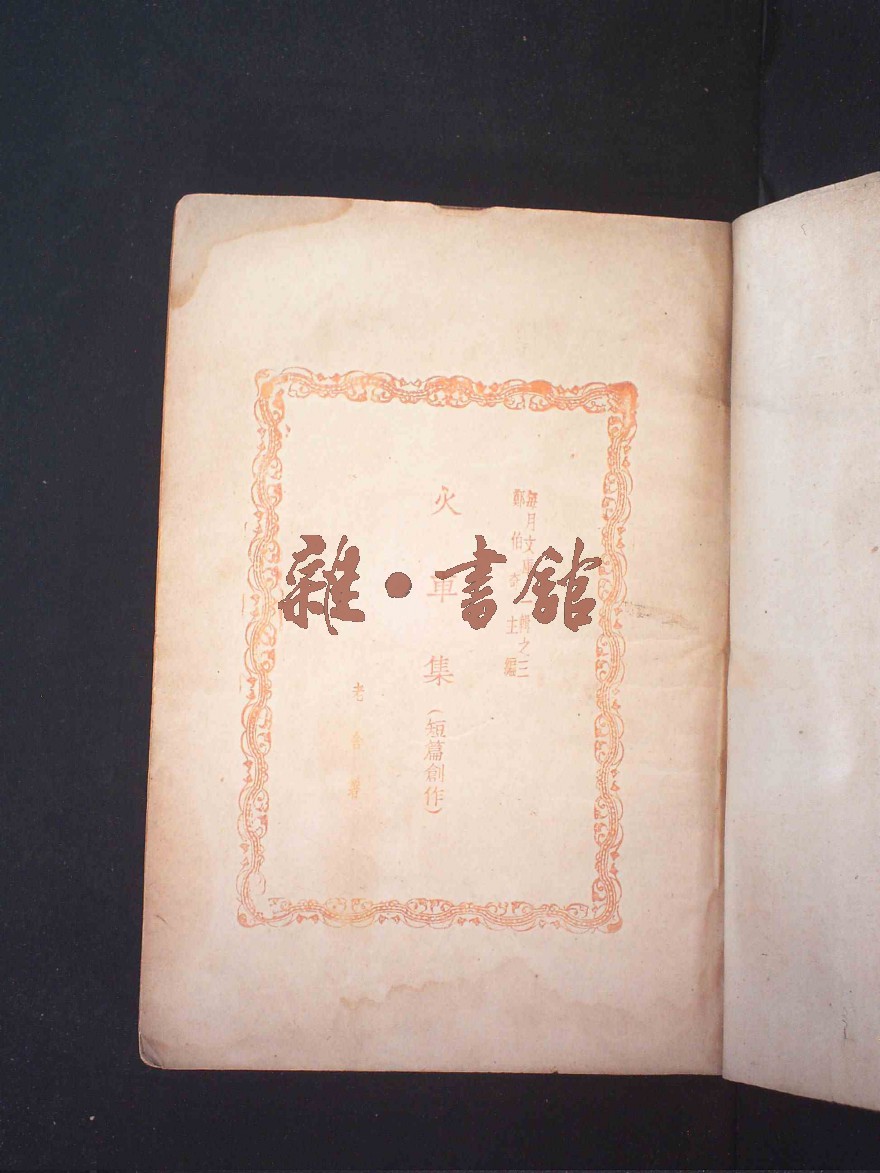 每月文庫一輯之三
鄭伯奇主編
火車集(短篇創作)
老舍著
雜·書館